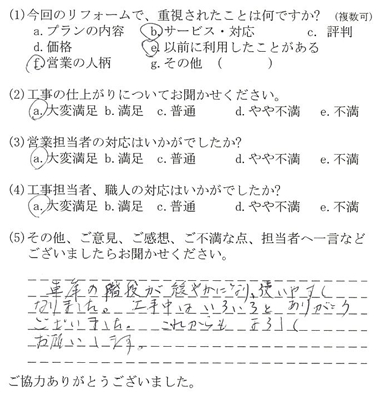 (1)今回のリフォームで、重視されたことは何ですか? (複数可)
a.プランの内容 b.サービス・対応 c. 評判
d.価格 e.以前に利用したことがある
f.営業の人柄 g.その他 ( )
(2)工事の仕上がりについてお聞かせください。
a.大変満足 b.満足 c.普通 d.やや不満 e.不満
(3)営業担当者の対応はいかがでしたか?
a.大変満足 b.満足 c.普通 d.やや不満 e.不満
(4)工事担当者、職人の対応はいかがでしたか?
a.大変満足 b.満足 c.普通 d.やや不満 e.不満
(5)その他、ご意見、ご感想、ご不満な点、担当者へ一言など
ございましたらお聞かせください。
階段が緩やかになり、使いやすく
なりました。工事中はいろいろとありがとう
ございました。これからもよろしく
お願いします。
ご協力ありがとうございました。